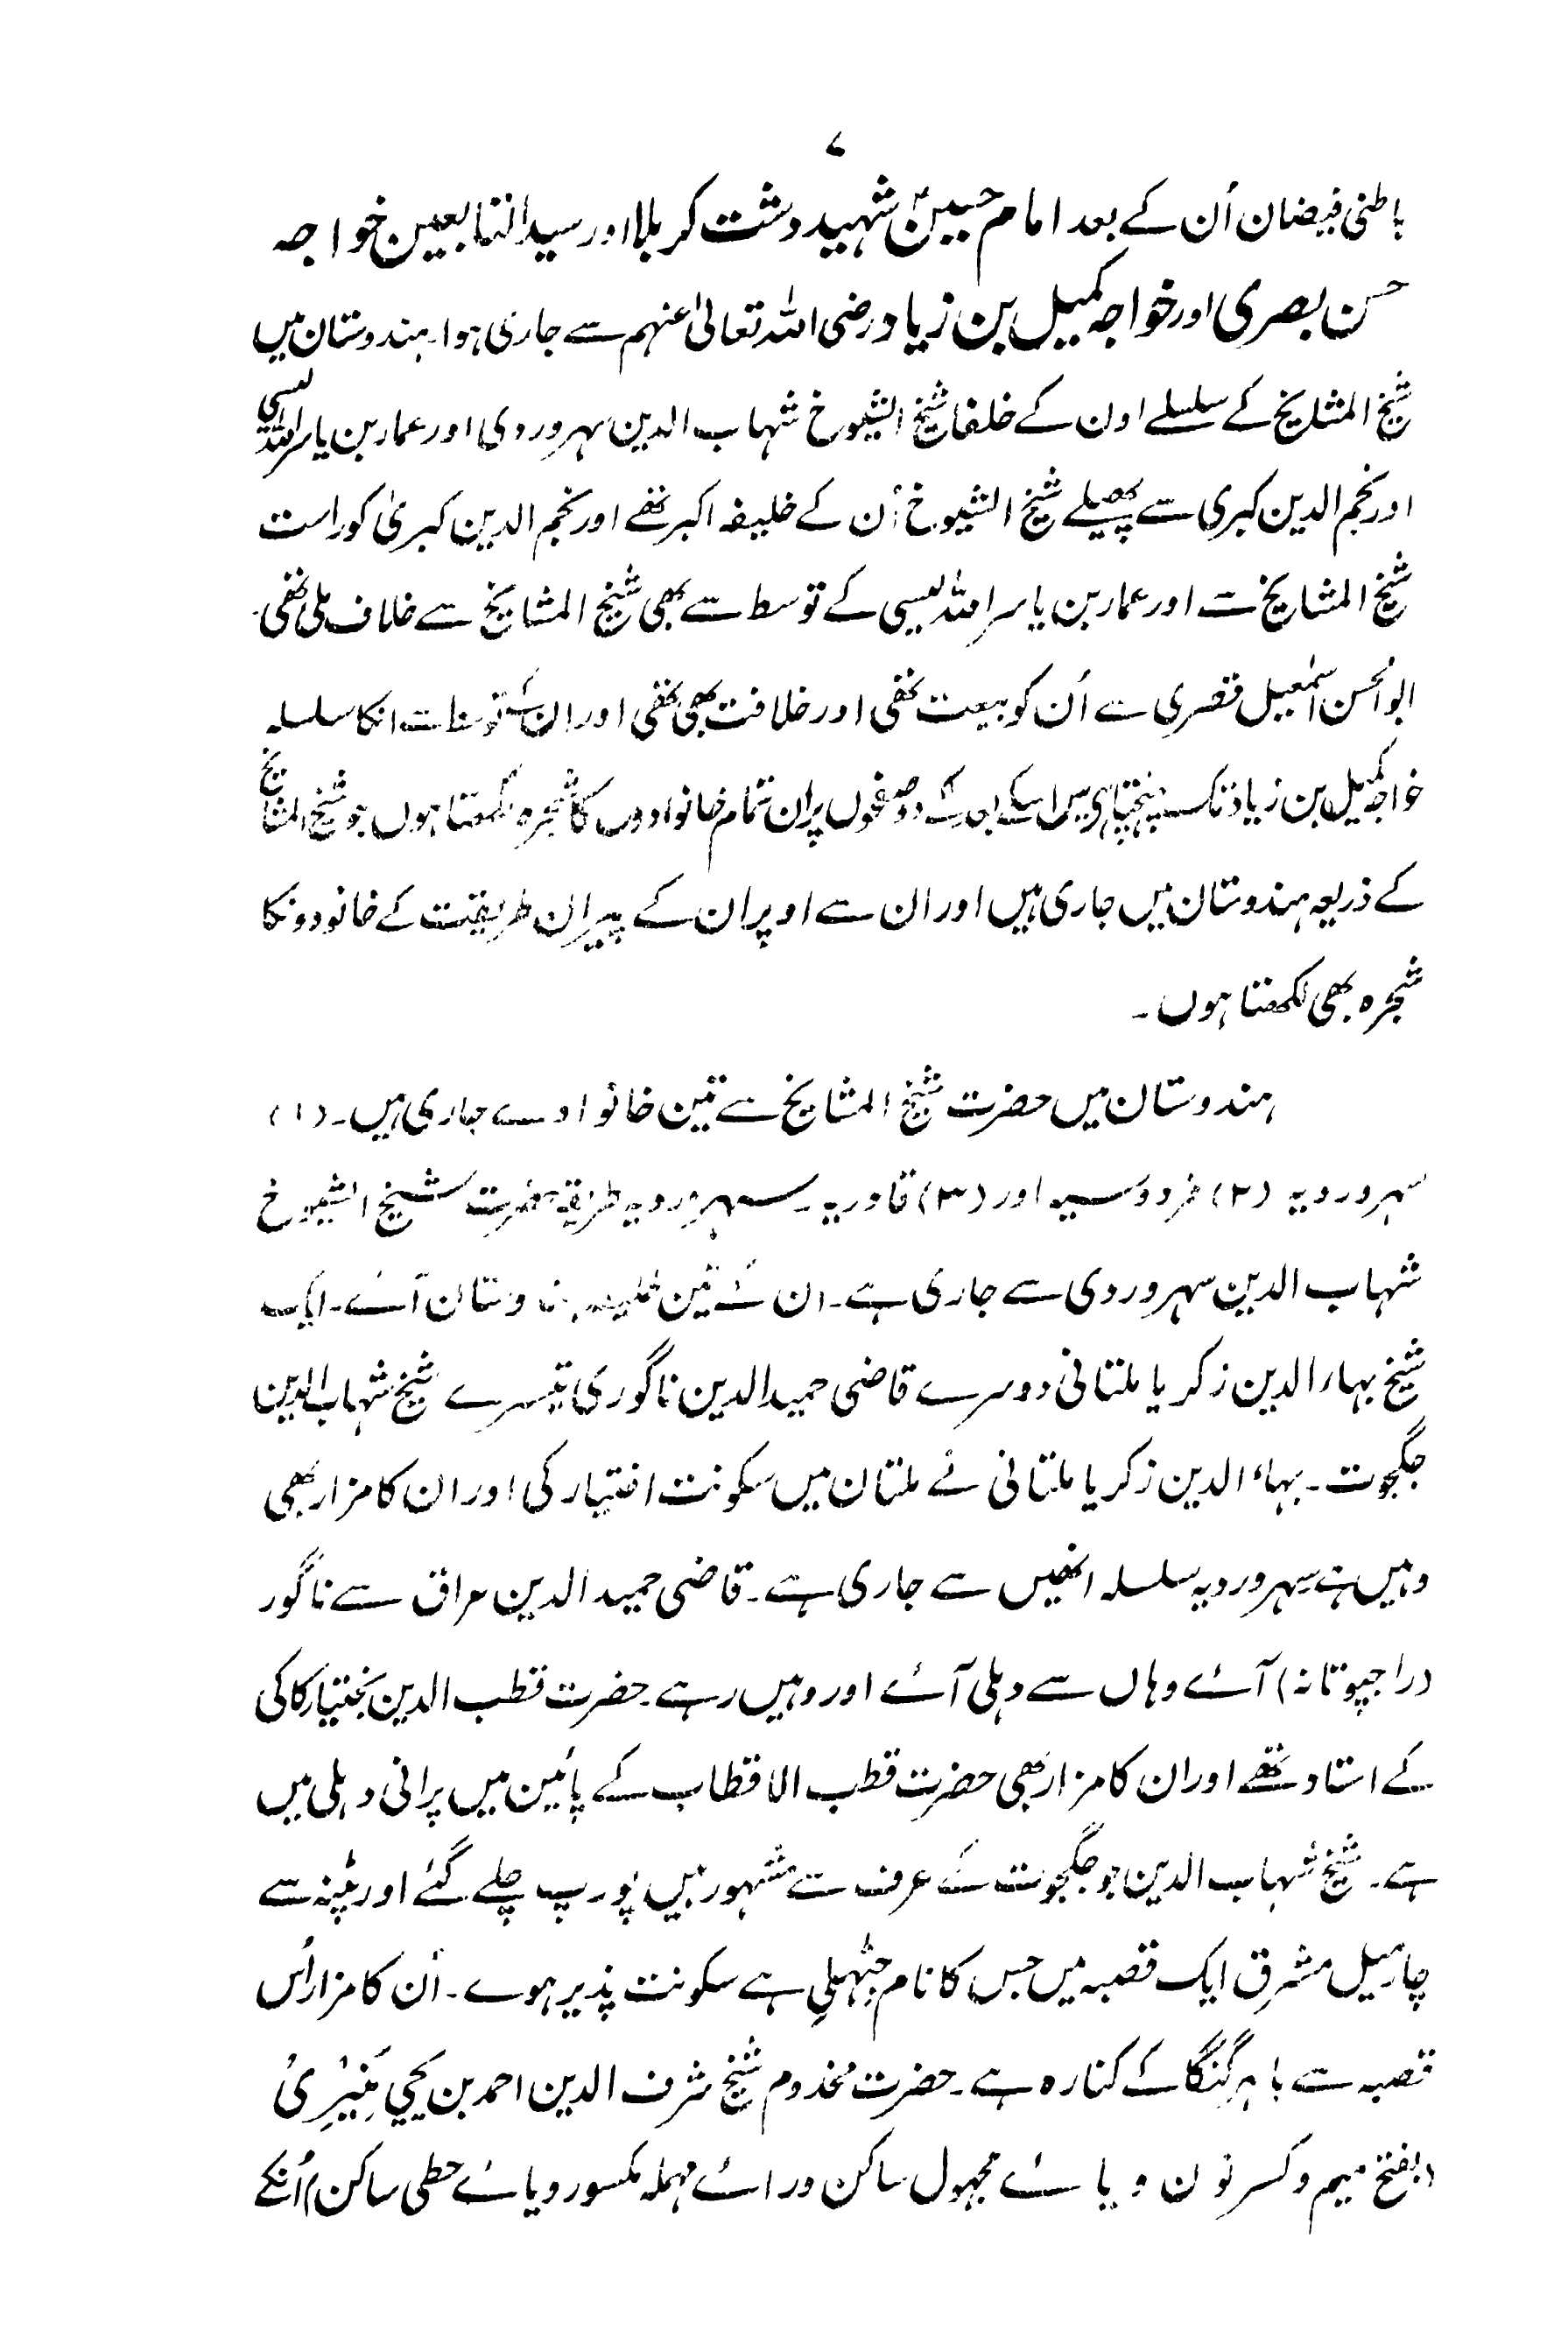 ۷
باطنی فیضان اُن کے بعد امام حسینؑ شہید دشت کربلا اور سید التابعین خواجہ
حسن بصری اور خواجہ کمیل بن زیاد رضی اللہ تعالیٰ عنہم سے جاری ہوا۔ ہندوستان میں
شیخ المشایخ کے سلسلے اون کے خلفا شیخ الشیوخ شہاب الدین سہروردی اور عمار بن یاسر اندلیسی
اور نجم الدین کبری سے پھیلے شیخ الشیوخ اُن کے خلیفہ اکبر تھے اور نجم الدین کبریٰ کو راست
شیخ المشایخ سے اور عمار بن یاسر اندلیسی کے توسط سے بھی شیخ المشایخ سے خلاف ملی تھی۔
ابو الحسن اسمٰعیل قصری سے اُن کو بیعت تھی اور خلافت بھی تھی اور ان کے توسط سے انکا سلسلہ
خواجہ کمیل بن زیاد تک پہنچتا ہے اسکے بعد کے دو صفحوں پر ان تمام خانوادوں کا شجرہ لکھتا ہوں جو شیخ المشایخ
کے ذریعہ ہندوستان میں جاری ہیں اور ان سے اوپر ان کے پیران طریقت کے خانودونکا
شجرہ بھی لکھتا ہوں۔
ہندوستان میں حضرت شیخ المشایخ سے تین خانوادے جاری ہیں۔ (۱)
سہروردیہ (۲) فردوسیہ اور (۳) قادریہ۔ سہروردیہ طریقہ حضرت شیخ الشیوخ
شہاب الدین سہروردی سے جاری ہے۔ ان کے تین خلیفہ ہندوستان آئے۔ ایک
شیخ بہاء الدین زکریا ملتانی دوسرے قاضی حمید الدین ناگوری تیسرے شیخ شہاب الدین
جگجوت۔ بہاء الدین زکریا ملتانی نے ملتان میں سکونت اختیار کی اور ان کا مزار بھی
وہیں ہے سہروردیہ سلسلہ انھیں سے جاری ہے۔ قاضی حمید الدین عراق سے ناگور
(راجپوتانہ) آئے وہاں سے دہلی آئے اور وہیں رہے۔ حضرت قطب الدین بختیار کاکی
کے استاد تھے اور ان کا مزار بھی حضرت قطب الاقطاب کے پائین میں پرانی دہلی میں
ہے۔ شیخ شہاب الدین جو جگجوت کے عرف سے مشہور ہیں پورب چلے گئے اور پٹنہ سے
چار میل مشرق ایک قصبہ میں جس کا نام جٹہلی ہے سکونت پذیر ہوے۔ اُن کا مزار اُس
قصبہ سے باہر گنگا کے کنارہ ہے۔ حضرت مخدوم شیخ شرف الدین احمد بن یحیی مَنِیْرِیْ
(بفتح میم و کسر نون و یائے مجہول ساکن و رائے مہملہ مکسور و یائے حطی ساکن) اُنکے